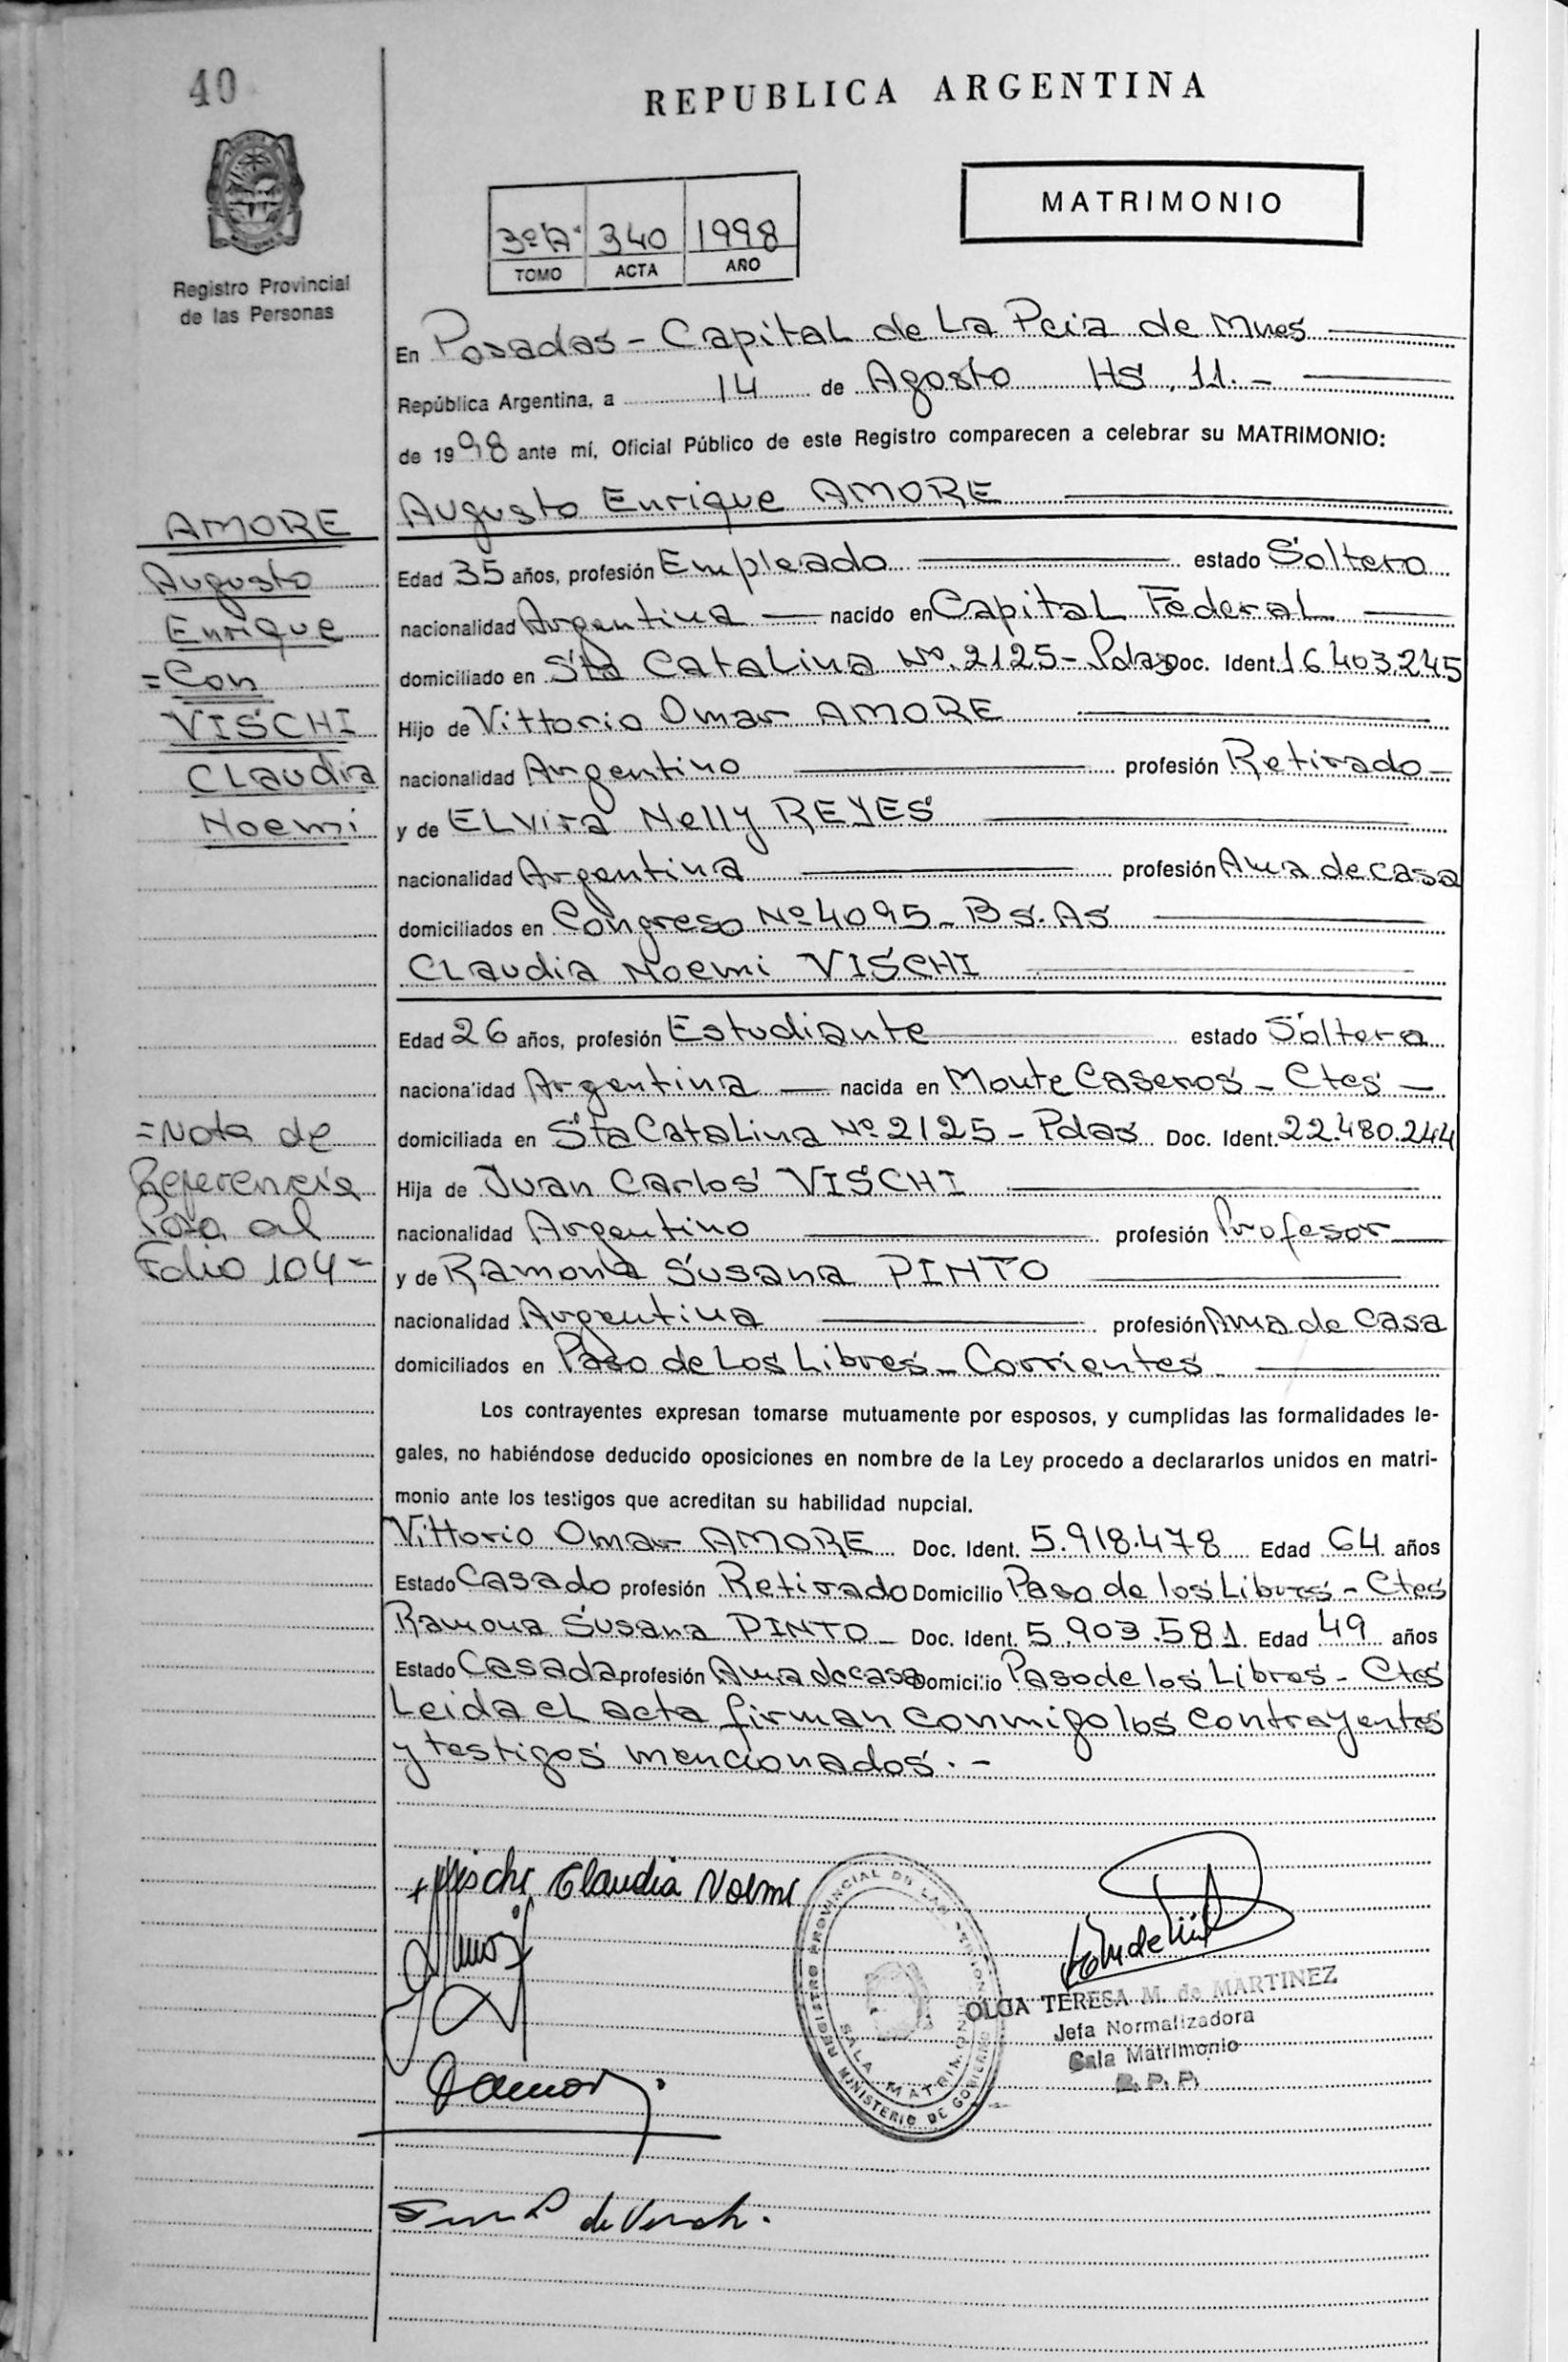 40
REPUBLICA ARGENTINA
MATRIMONIO
3º "A" 340 1998
TOMO ACTA AÑO
Registro Provincial
de las Personas
En Posadas - Capital de La Pcia de Mnes
República Argentina, a 14 de Agosto HS. 11.-
de 1998 ante mí, Oficial Público de este Registro comparecen a celebrar su MATRIMONIO:
Augusto Enrique AMORE
AMORE
Augusto
Enrique
=Con
VISCHI
Claudia
Noemi
Edad 35 años, profesión Empleado estado Soltero
nacionalidad Argentina nacido en Capital Federal
domiciliado en Sta Catalina Nº 2125 - Pdas Doc. Ident. 16.403.245
Hijo de Vittorio Omar AMORE
nacionalidad Argentino profesión Retirado
y de Elvira Nelly REYES
nacionalidad Argentina profesión Ama de casa
domiciliados en Congreso Nº 4095 - Bs. As
Claudia Noemi VISCHI
Edad 26 años, profesión Estudiante estado Soltera
nacionalidad Argentina nacida en Monte Caseros - Ctes
domiciliada en Sta Catalina Nº 2125 - Pdas Doc. Ident. 22.480.244
Hija de Juan Carlos VISCHI
nacionalidad Argentino profesión Profesor
y de Ramona Susana PINTO
nacionalidad Argentina profesión Ama de Casa
domiciliados en Paso de Los Libres - Corrientes
=Nota de
Referencia
Pasa al
Folio 104=
Los contrayentes expresan tomarse mutuamente por esposos, y cumplidas las formalidades le-
gales, no habiéndose deducido oposiciones en nombre de la Ley procedo a declararlos unidos en matri-
monio ante los testigos que acreditan su habilidad nupcial.
Vittorio Omar AMORE Doc. Ident. 5.918.478 Edad 64 años
Estado Casado profesión Retirado Domicilio Paso de los Libres - Ctes
Ramona Susana PINTO - Doc. Ident. 5.903.581 Edad 49 años
Estado Casada profesión Ama de casa Domicilio Paso de los Libres - Ctes
Leida el acta firman conmigo los contrayentes
y testigos mencionados.-
Vischi Claudia Noemi
REGISTRO PROVINCIAL DE LAS PERSONAS
SALA MATRIMONIO
MINISTERIO DE GOBIERNO
OLGA TERESA M. de MARTINEZ
Jefa Normalizadora
Sala Matrimonio
R. P. P.